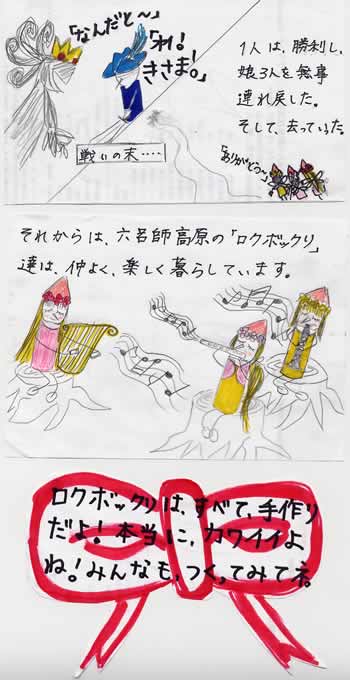 「なんだと〜」
「わ!
きさま!」
1人は、勝利し、
娘3人を無事
連れ戻した。
そして、去っていった。
戦いの末・・・・
「ありがとう〜」
それからは、六名師高原の「ロクボックリ」
達は、仲よく、楽しく暮らしています。
ロクボックリは、すべて、手作り
だよ!本当に、カワイイよ
ね!みんなも、つくってみてネ。